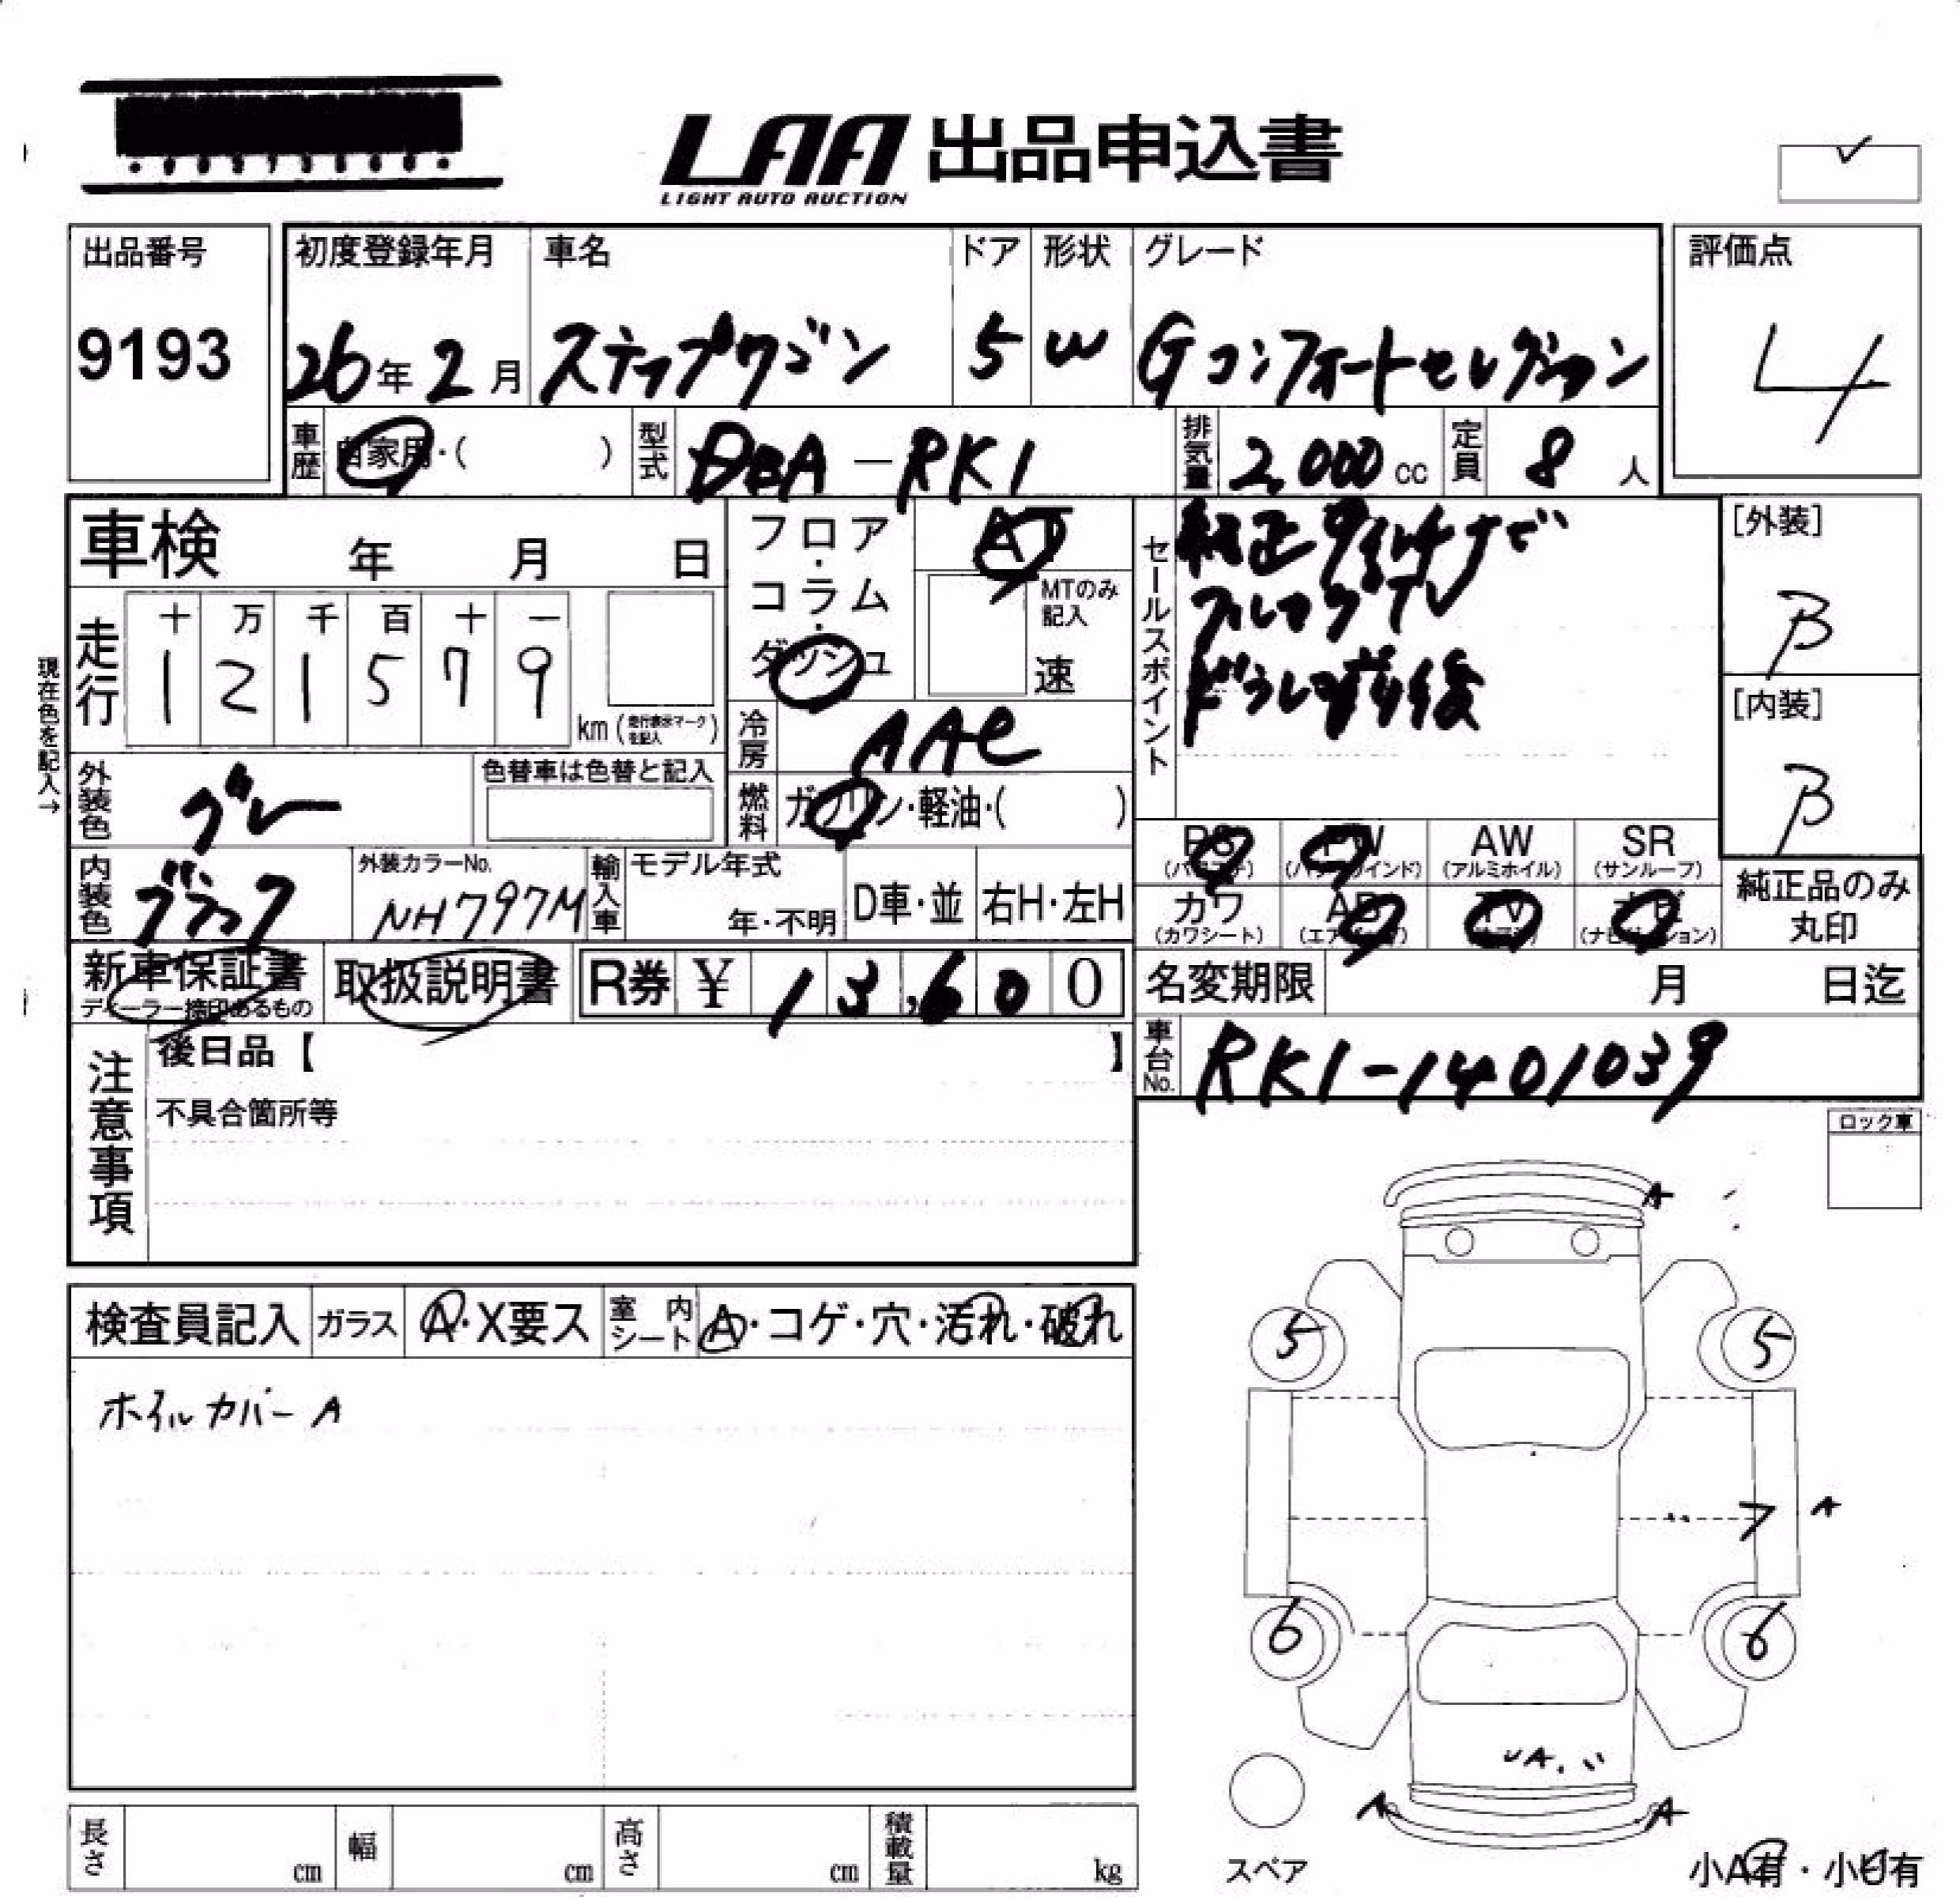 LAA 出品申込書
LIGHT AUTO AUCTION
出品番号
9193
初度登録年月 車名 ドア 形状 グレード
26年2月 ステップワゴン 5 W Gコンフォートセレクション
評価点
4
車歴 自家用・( ) 型式 DBA-RK1 排気量 2,000cc 定員 8人
車検 年 月 日
フロア・コラム・ダッシュ
AT
MTのみ記入
速
現在色を記入→
走行
十 万 千 百 十 一
1 2 1 5 7 9
km(走行表示マークを記入)
冷房 AAC
燃料 ガソリン・軽油・( )
セールスポイント
純正9インチナビ
フルセグTV
ドラレコ前後
[外装]
B
[内装]
B
外装色 グレー
色替車は色替と記入
内装色 ブラック
外装カラーNo.
NH797M
輸入車 モデル年式
年・不明
D車・並 右H・左H
PS PW AW SR
(パワステ) (パワーウインド) (アルミホイル) (サンルーフ)
カワ AB TV ナビ
(カワシート) (エアバッグ) (ナビゲーション)
純正品のみ
丸印
新車保証書
ディーラー捺印あるもの
取扱説明書
R券 ¥ 13,600
名変期限 月 日迄
車台No. RK1-1401039
注意事項
後日品【 】
不具合箇所等
ロック車
検査員記入 ガラス A・X要ス 室内シート A・コゲ・穴・汚れ・破れ
ホイルカバーA
A
5 5
7 A
6 6
A
A A
スペア
小A有・小U有
長さ cm 幅 cm 高さ cm 積載量 kg